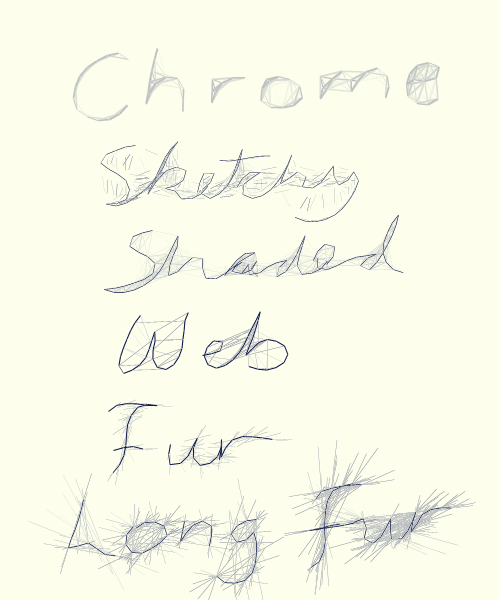 Chrome
Sketchy
Shaded
Web
Fur
Long Fur